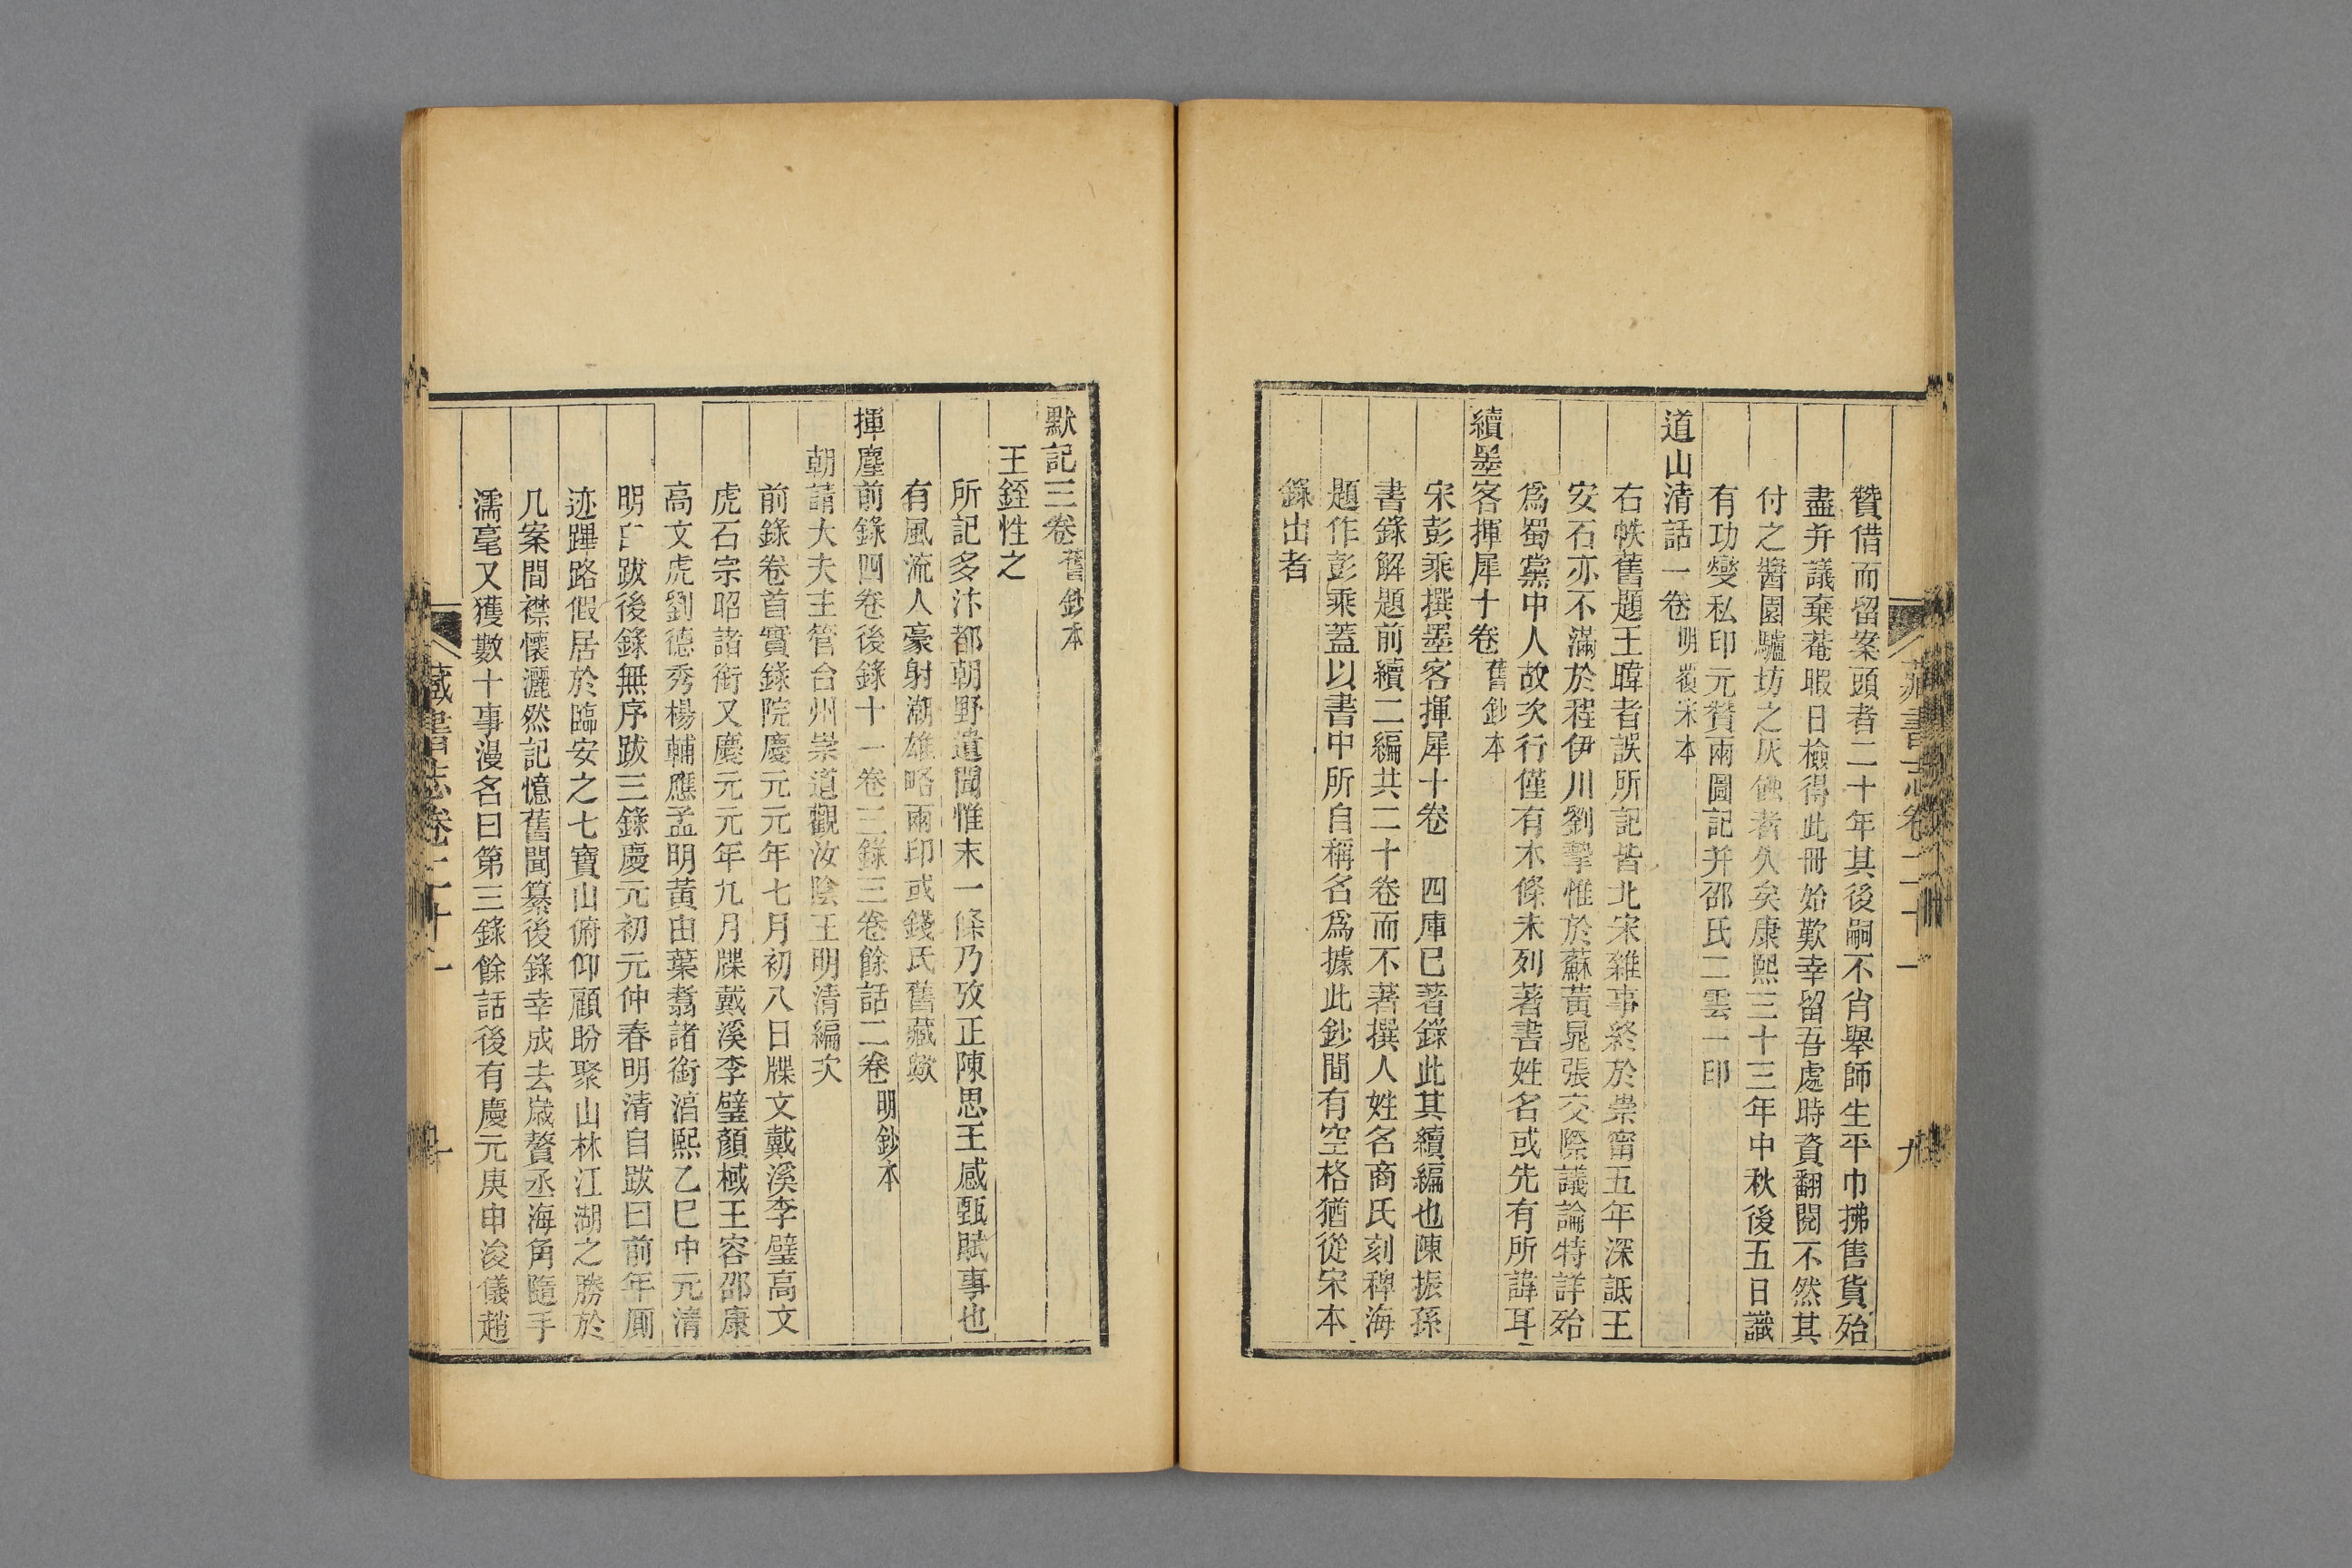 贊借而留案頭者二十年其後嗣不肖舉師生平巾拂售貨殆
盡并議棄菴暇日檢得此冊始歎幸留吾處時資翻閱不然其
付之醬園驢坊之灰蝕者久矣康熙三十三年中秋後五日識
有功燮私印元贊兩圖記并邵氏二雲一印
道山清話一卷明覆宋本
右帙舊題王暐者誤所記皆北宋雜事終於崇甯五年深詆王
安石亦不滿於程伊川劉摯惟於蘇黃晁張交際議論特詳殆
爲蜀黨中人故次行僅有本條未列著書姓名或先有所諱耳
續墨客揮犀十卷舊鈔本
宋彭乘撰墨客揮犀十卷 四庫已著錄此其續編也陳振孫
書錄解題前續二編共二十卷而不著撰人姓名商氏刻稗海
題作彭乘蓋以書中所自稱名爲據此鈔間有空格猶從宋本
錄出者
藏書志卷二十一 九
默記三卷舊鈔本
王銍性之
所記多汴都朝野遺聞惟末一條乃攷正陳思王感甄賦事也
有風流人豪射潮雄略兩印或錢氏舊藏歟
揮麈前錄四卷後錄十一卷三錄三卷餘話二卷明鈔本
朝請大夫主管台州崇道觀汝陰王明清編次
前錄卷首實錄院慶元元年七月初八日牒文戴溪李璧高文
虎石宗昭諸銜又慶元元年九月牒戴溪李璧顏棫王容邵康
高文虎劉德秀楊輔應孟明黃由葉翥諸銜淳熙乙巳中元清
明自跋後錄無序跋三錄慶元初元仲春明清自跋曰前年厠
迹蹕路假居於臨安之七寶山俯仰顧盼聚山林江湖之勝於
几案間襟懷灑然記憶舊聞纂後錄幸成去歲贅丞海角隨手
濡毫又獲數十事漫名曰第三錄餘話後有慶元庚申浚儀趙
藏書志卷二十一 十